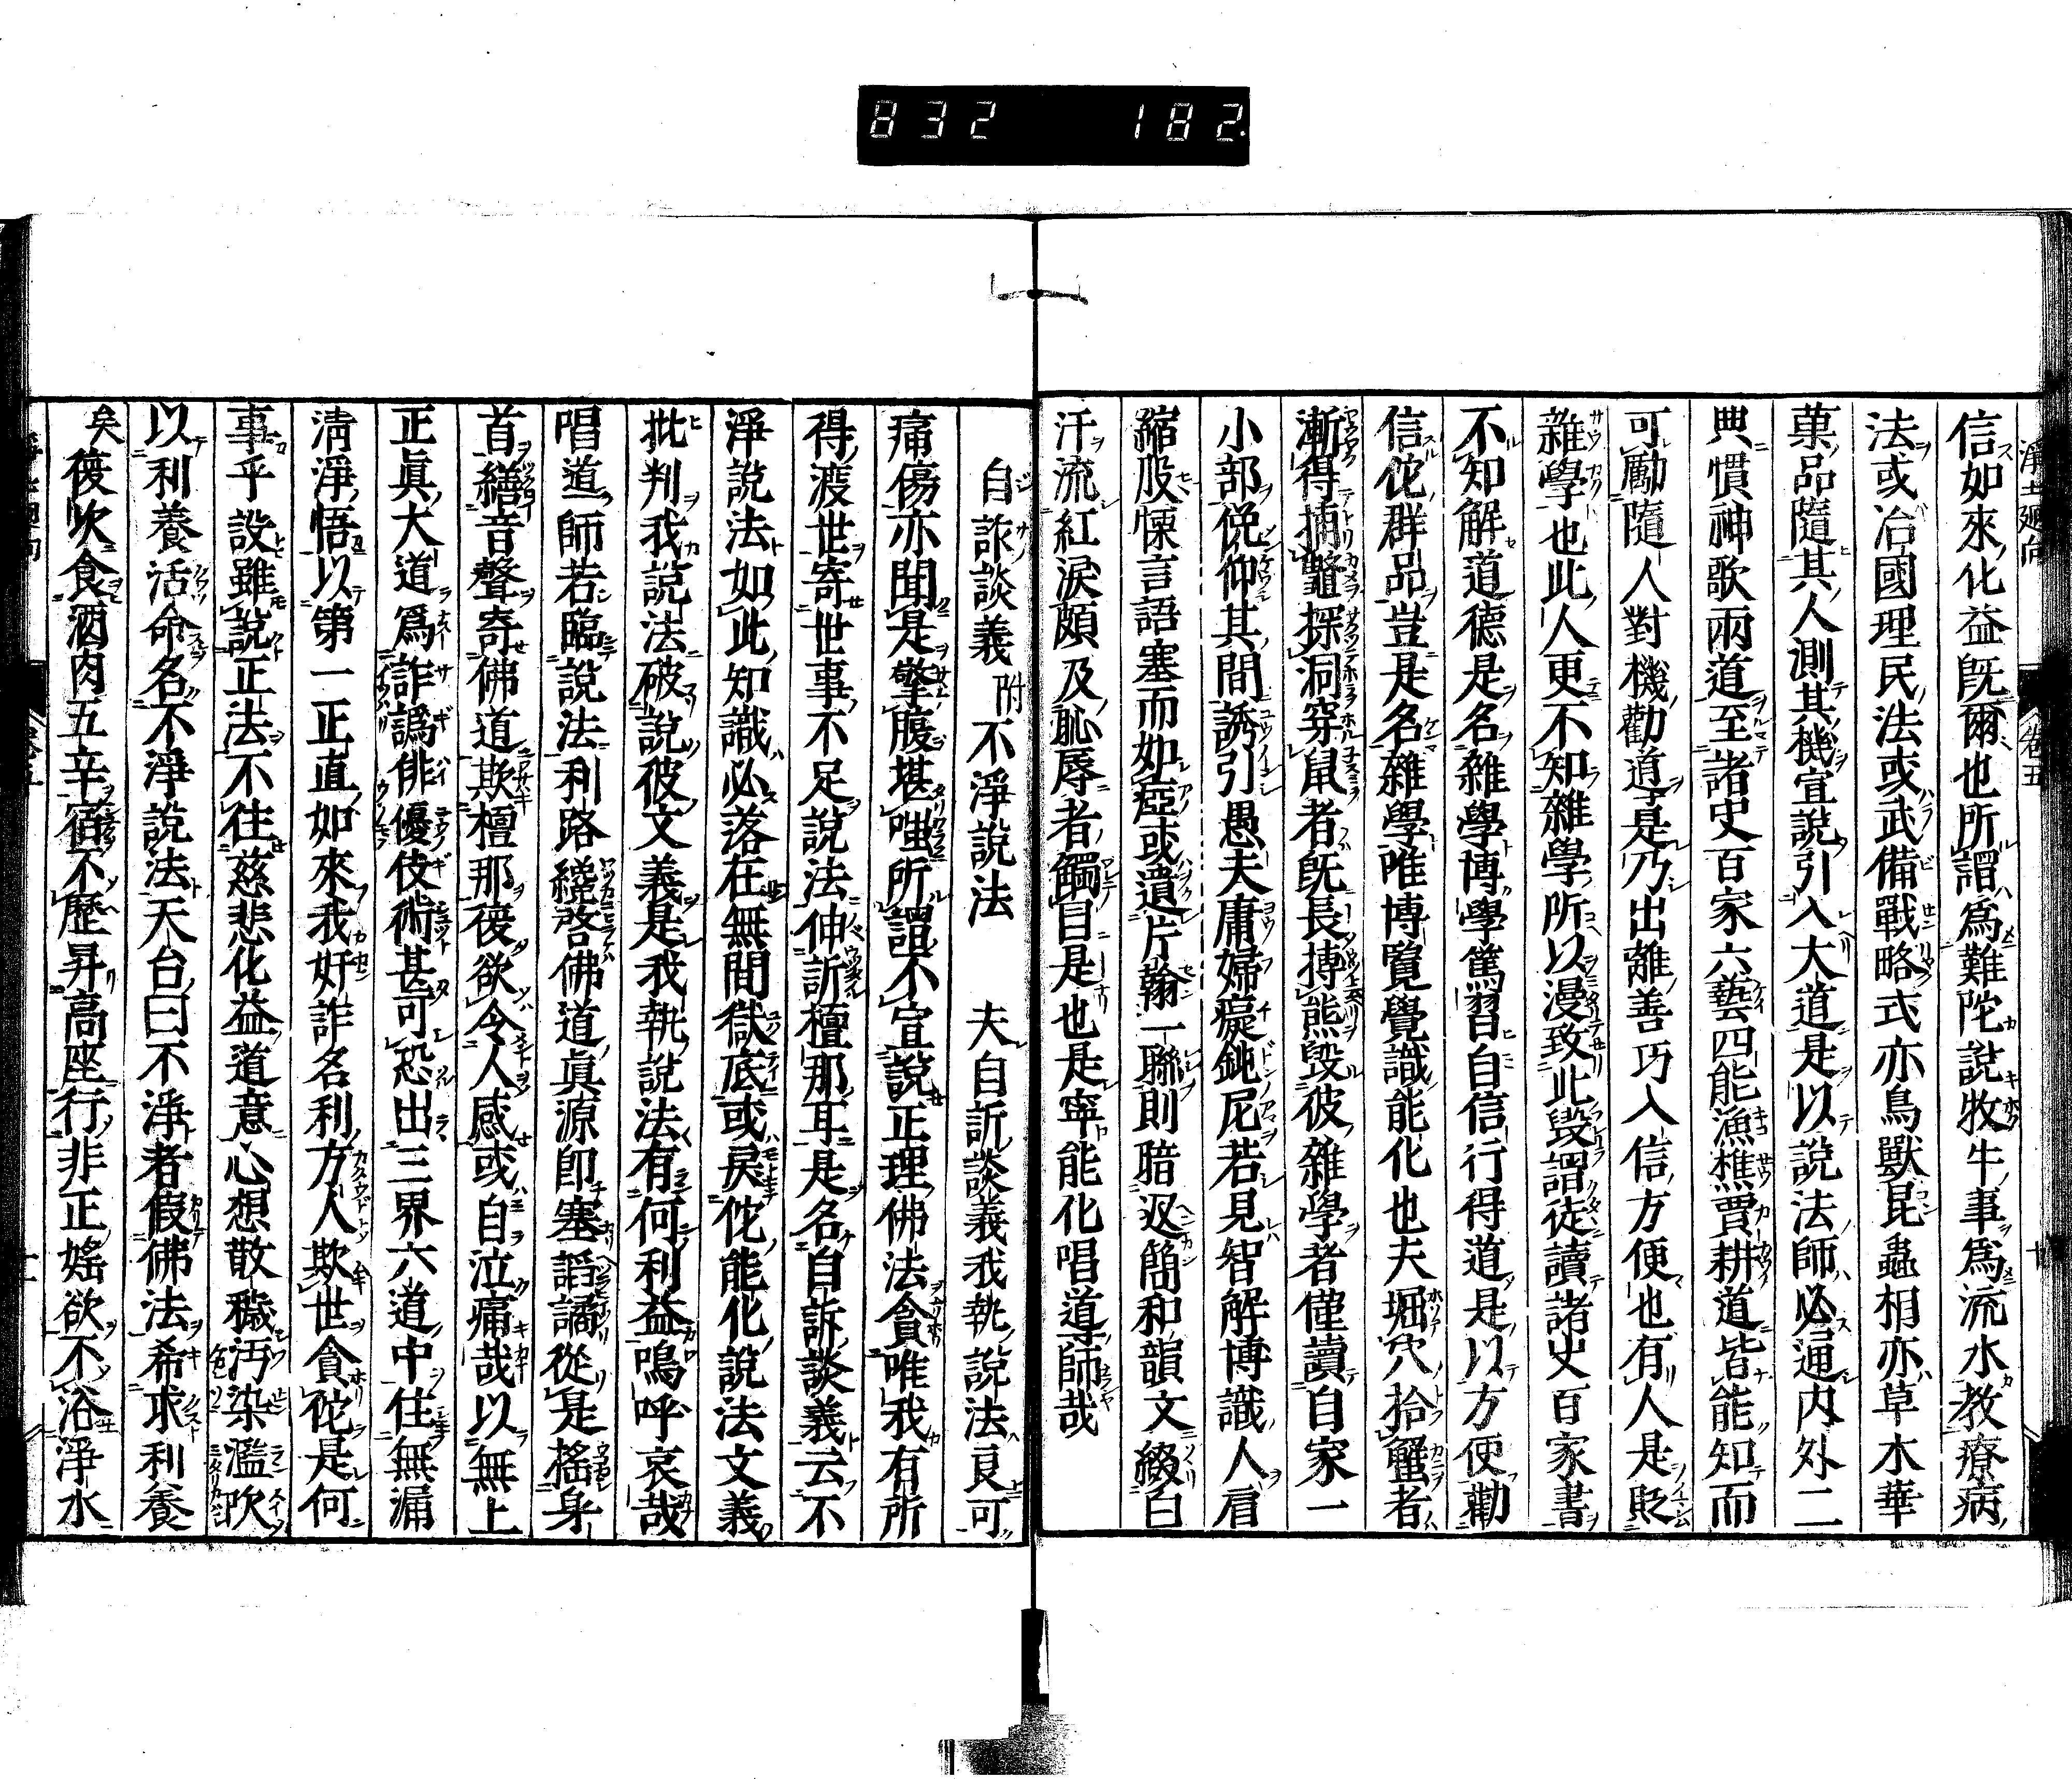 832 182.
信如來化益既爾也所謂爲難陀說牧牛事爲流水教療病
法或治國理民法或武備戰略式亦鳥獸昆蟲相亦草木華
菓品隨其人測其機宜說引入大道是以說法師必通內外二
典慣神歌兩道至諸史百家六藝四能漁樵賈耕道皆能知而
可勵隨人對機勸道是乃出離善巧入信方便也有人是貶
雜學也此人更不知雜學所以漫致此毀謂徒讀諸史百家書
不知解道德是名雜學博學篤習自信行得道是以方便勸
信佗群品豈是名雜學唯博覽覺識能化也夫堀穴拾蟹者
漸得捕龜探洞穿鼠者既長摶熊毀彼雜學者僅讀自家一
小部俛仰其間誘引愚夫庸婦癡鈍尼若見智解博識人肩
縮股悚言語塞而如瘂或遺片翰一聯則暗返簡和韻文綴白
汗流紅淚頗及恥辱者觸目是也是寧能化唱導師哉
自訴談義 附 不淨說法 夫自訴談義我執說法良可
痛傷亦聞是擎腹堪嗤所謂不宣說正理佛法貪唯我有所
得渡世寄世事不足說法伸訴檀那耳是名自訴談義云不
淨說法如此知識必落在無間獄底或戾佗能化說法文義
批判我說法破說彼文義是我執說法有何利益嗚呼哀哉
唱道師若臨說法利路纔啓佛道眞源卽塞謟譎從是搖身
首繕音聲寄佛道欺檀那復欲令人感或自泣痛哉以無上
正眞大道爲詐譌俳優伎術甚可恐出三界六道中住無漏
淸淨悟以第一正直如來我奸詐名利方人欺世貪佗是何
事乎設雖說正法不住慈悲化益道意心想散穢汚染濫吹
以利養活命名不淨說法天台曰不淨者假佛法希求利養
矣復吹食酒肉五辛宿不歷昇高座行非正婬欲不浴淨水